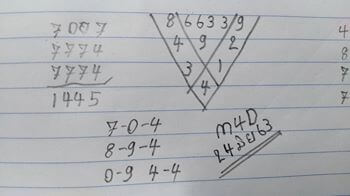 7007
7774
7774
1445
8 6 6 3 3 9
4 9 2
3 1
4
7-0-4
8-9-4
0-9 4-4
M4D
4
8
7
7